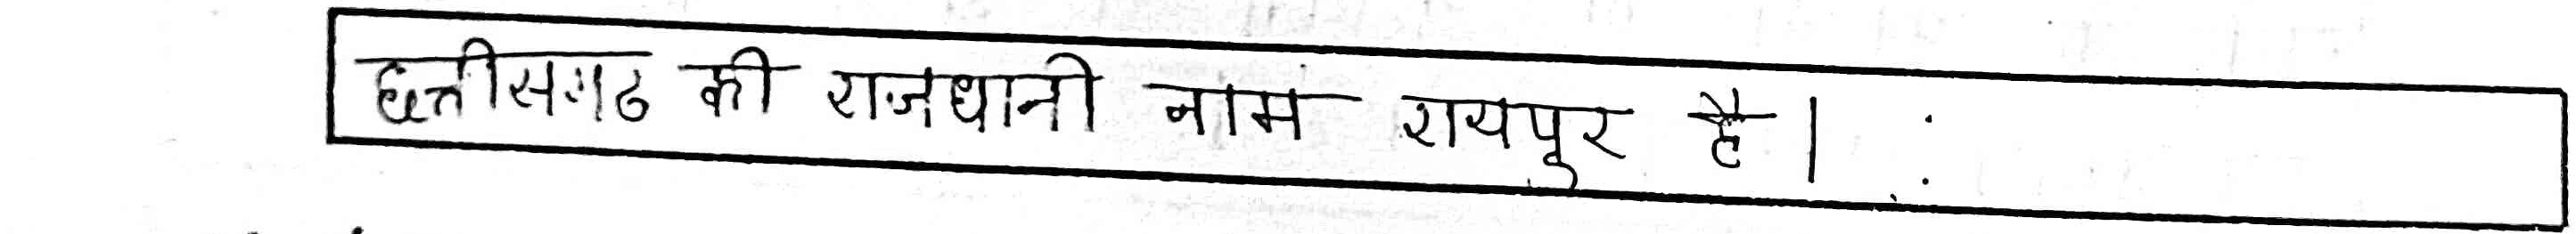 छत्तीसगढ की राजधानी नाम रायपुर है।